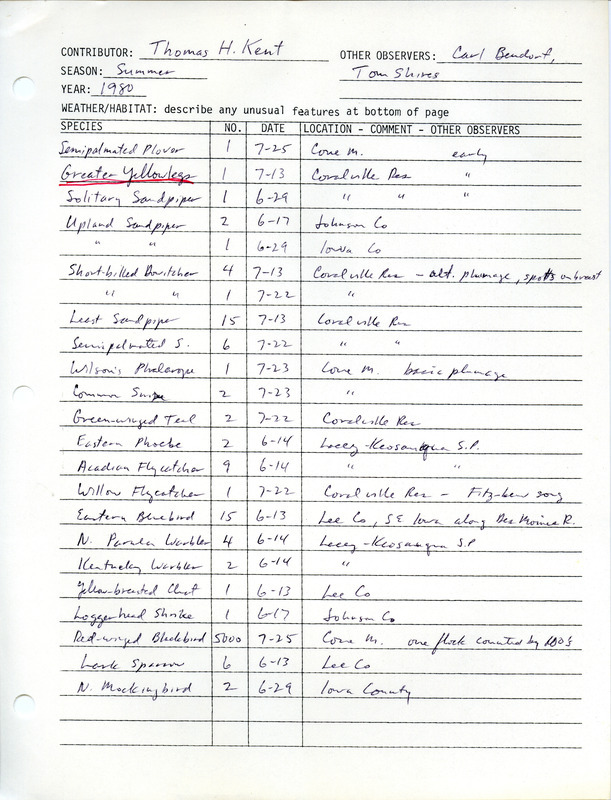 CONTRIBUTOR: Thomas H. Kent OTHER OBSERVERS: Carl Bendorf,
SEASON: Summer Tom Shires
YEAR: 1980
WEATHER/HABITAT: describe any unusual features at bottom of page
SPECIES NO. DATE LOCATION - COMMENT - OTHER OBSERVERS
Semipalmated Plover 1 7-25 Cone M. early
Greater Yellowlegs 1 7-13 Coralville Res "
Solitary Sandpiper 1 6-29 " " "
Upland Sandpiper 2 6-17 Johnson Co
" " 1 6-29 Iowa Co
Short-billed Dowitcher 4 7-13 Coralville Res - alt. plumage, spots on breast
" " 1 7-22 "
Least Sandpiper 15 7-13 Coralville Res
Semipalmated S. 6 7-22 " "
Wilson's Phalarope 1 7-23 Cone M. basic plumage
Common Snipe 2 7-23 "
Green-winged Teal 2 7-22 Coralville Res
Eastern Phoebe 2 6-14 Lacey-Keosauqua S.P.
Acadian Flycatcher 9 6-14 " "
Willow Flycatcher 1 7-22 Coralville Res - Fitz-bew song
Eastern Bluebird 15 6-13 Lee Co, SE Iowa along Des Moines R.
N. Parula Warbler 4 6-14 Lacey-Keosauqua S.P
Kentucky Warbler 2 6-14 "
Yellow-breasted Chat 1 6-13 Lee Co
Loggerhead Shrike 1 6-17 Johnson Co
Red-winged Blackbird 5000 7-25 Cone M. one flock counted by 100's
Lark Sparrow 6 6-13 Lee Co
N. Mockingbird 2 6-29 Iowa County